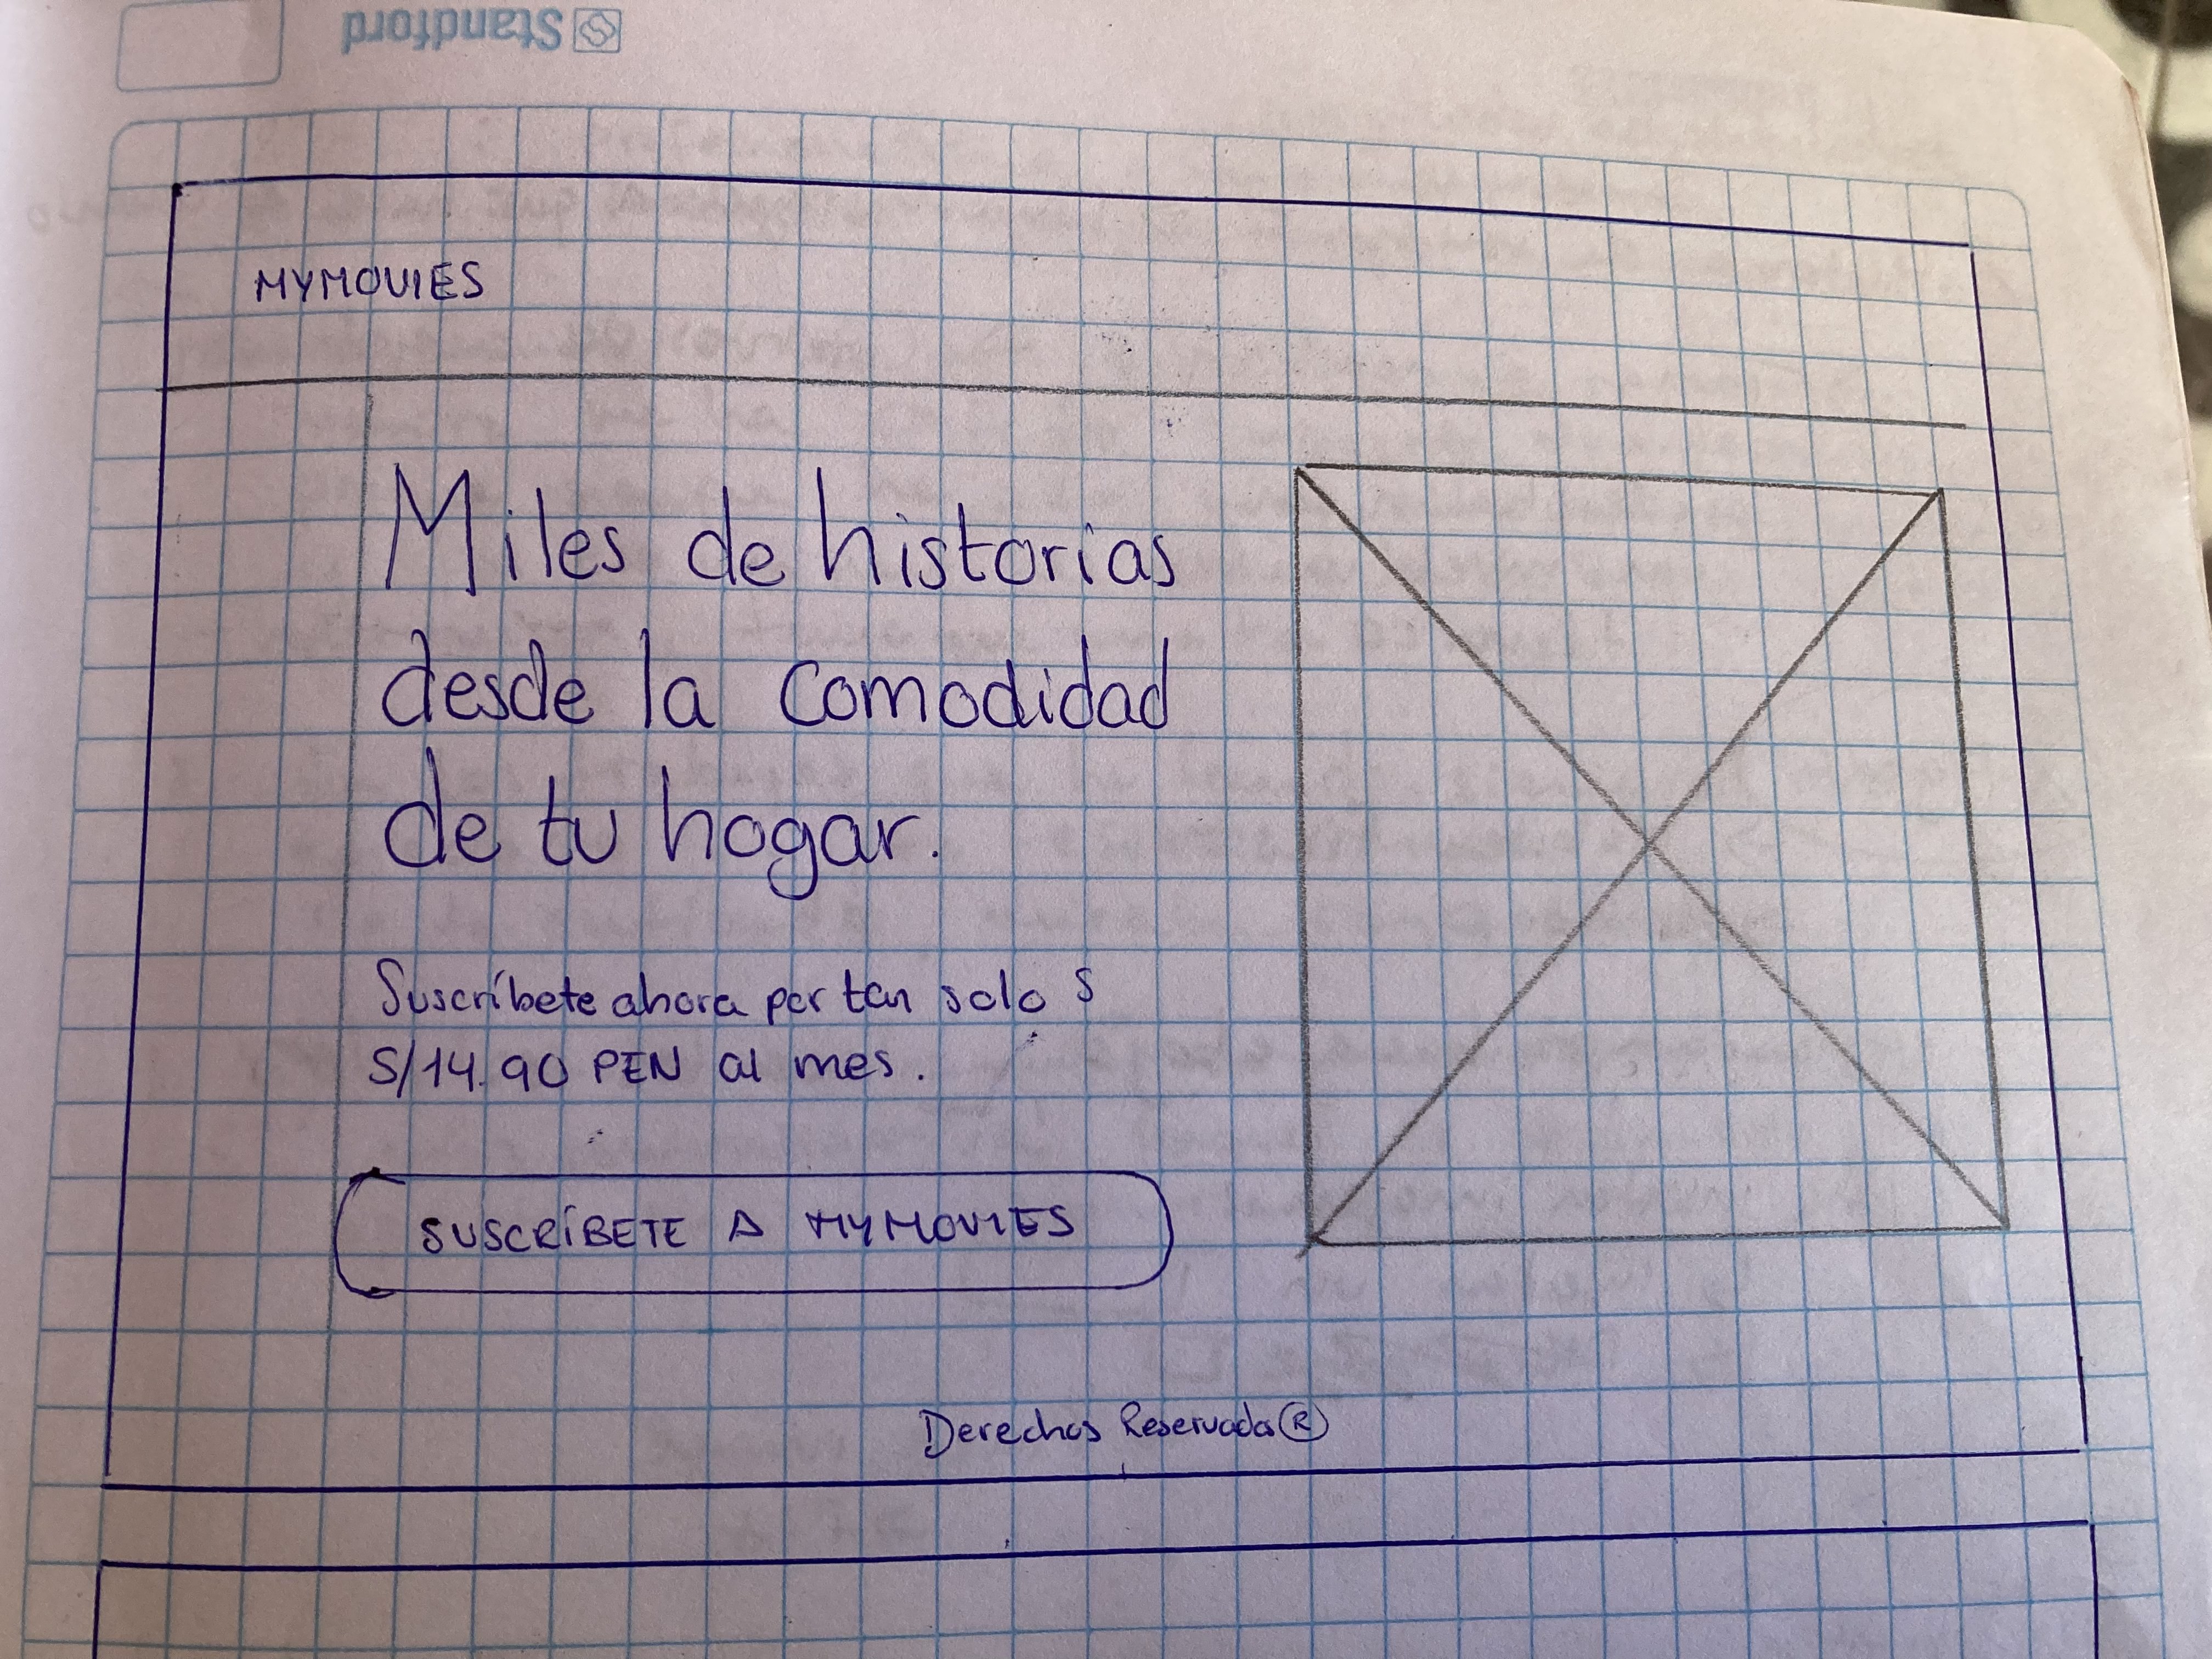 Standford
MYMOVIES
Miles de historias
desde la comodidad
de tu hogar.
Suscríbete ahora por tan solo S
S/14.90 PEN al mes.
SUSCRÍBETE A MYMOVIES
Derechos Reservados ®